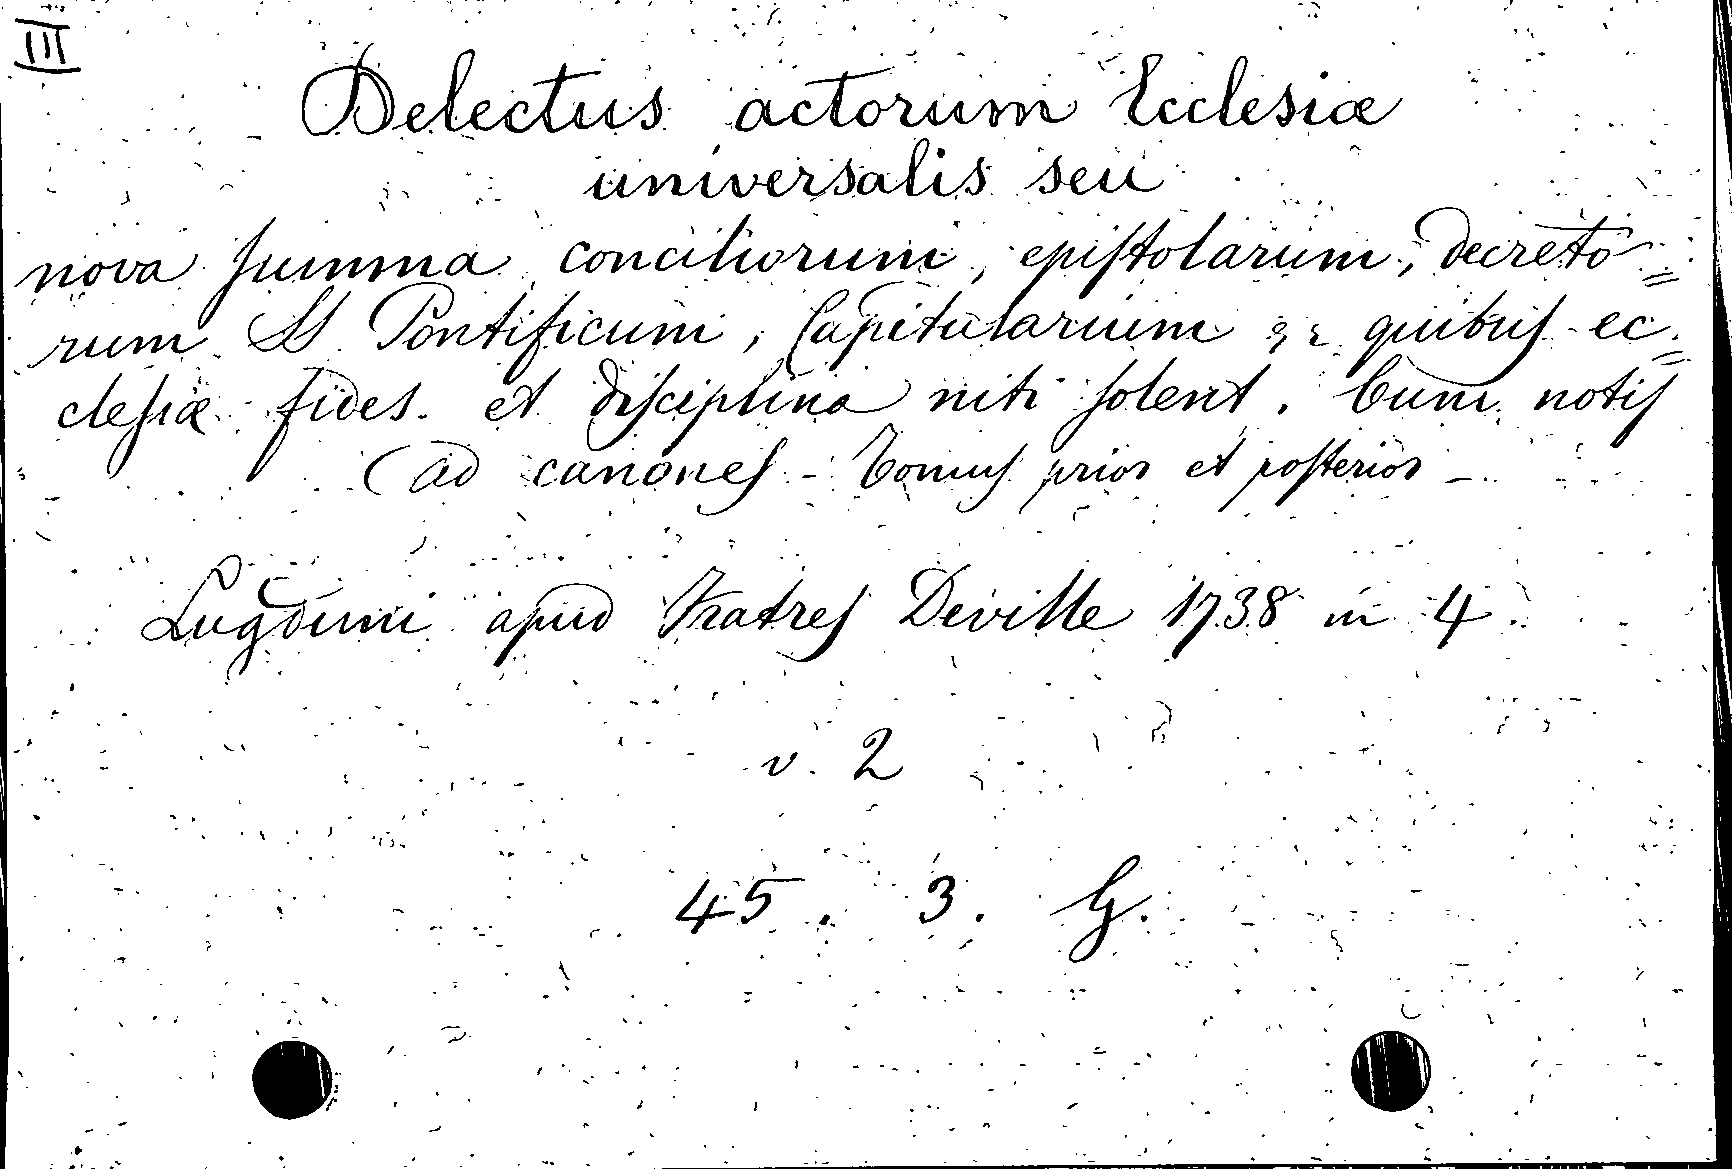 III
Delectus actorum Ecclesiæ
universalis seu
nova summa conciliorum, epistolarum, decreto=
rum SS Pontificum, Capitularium &c quibus ec=
clesiæ fides et disciplina niti solent. Cum notis
ad canones - Tomus prior et posterior -
Lugduni apud Fratres Deville 1738 in 4
v. 2
45. 3. G.